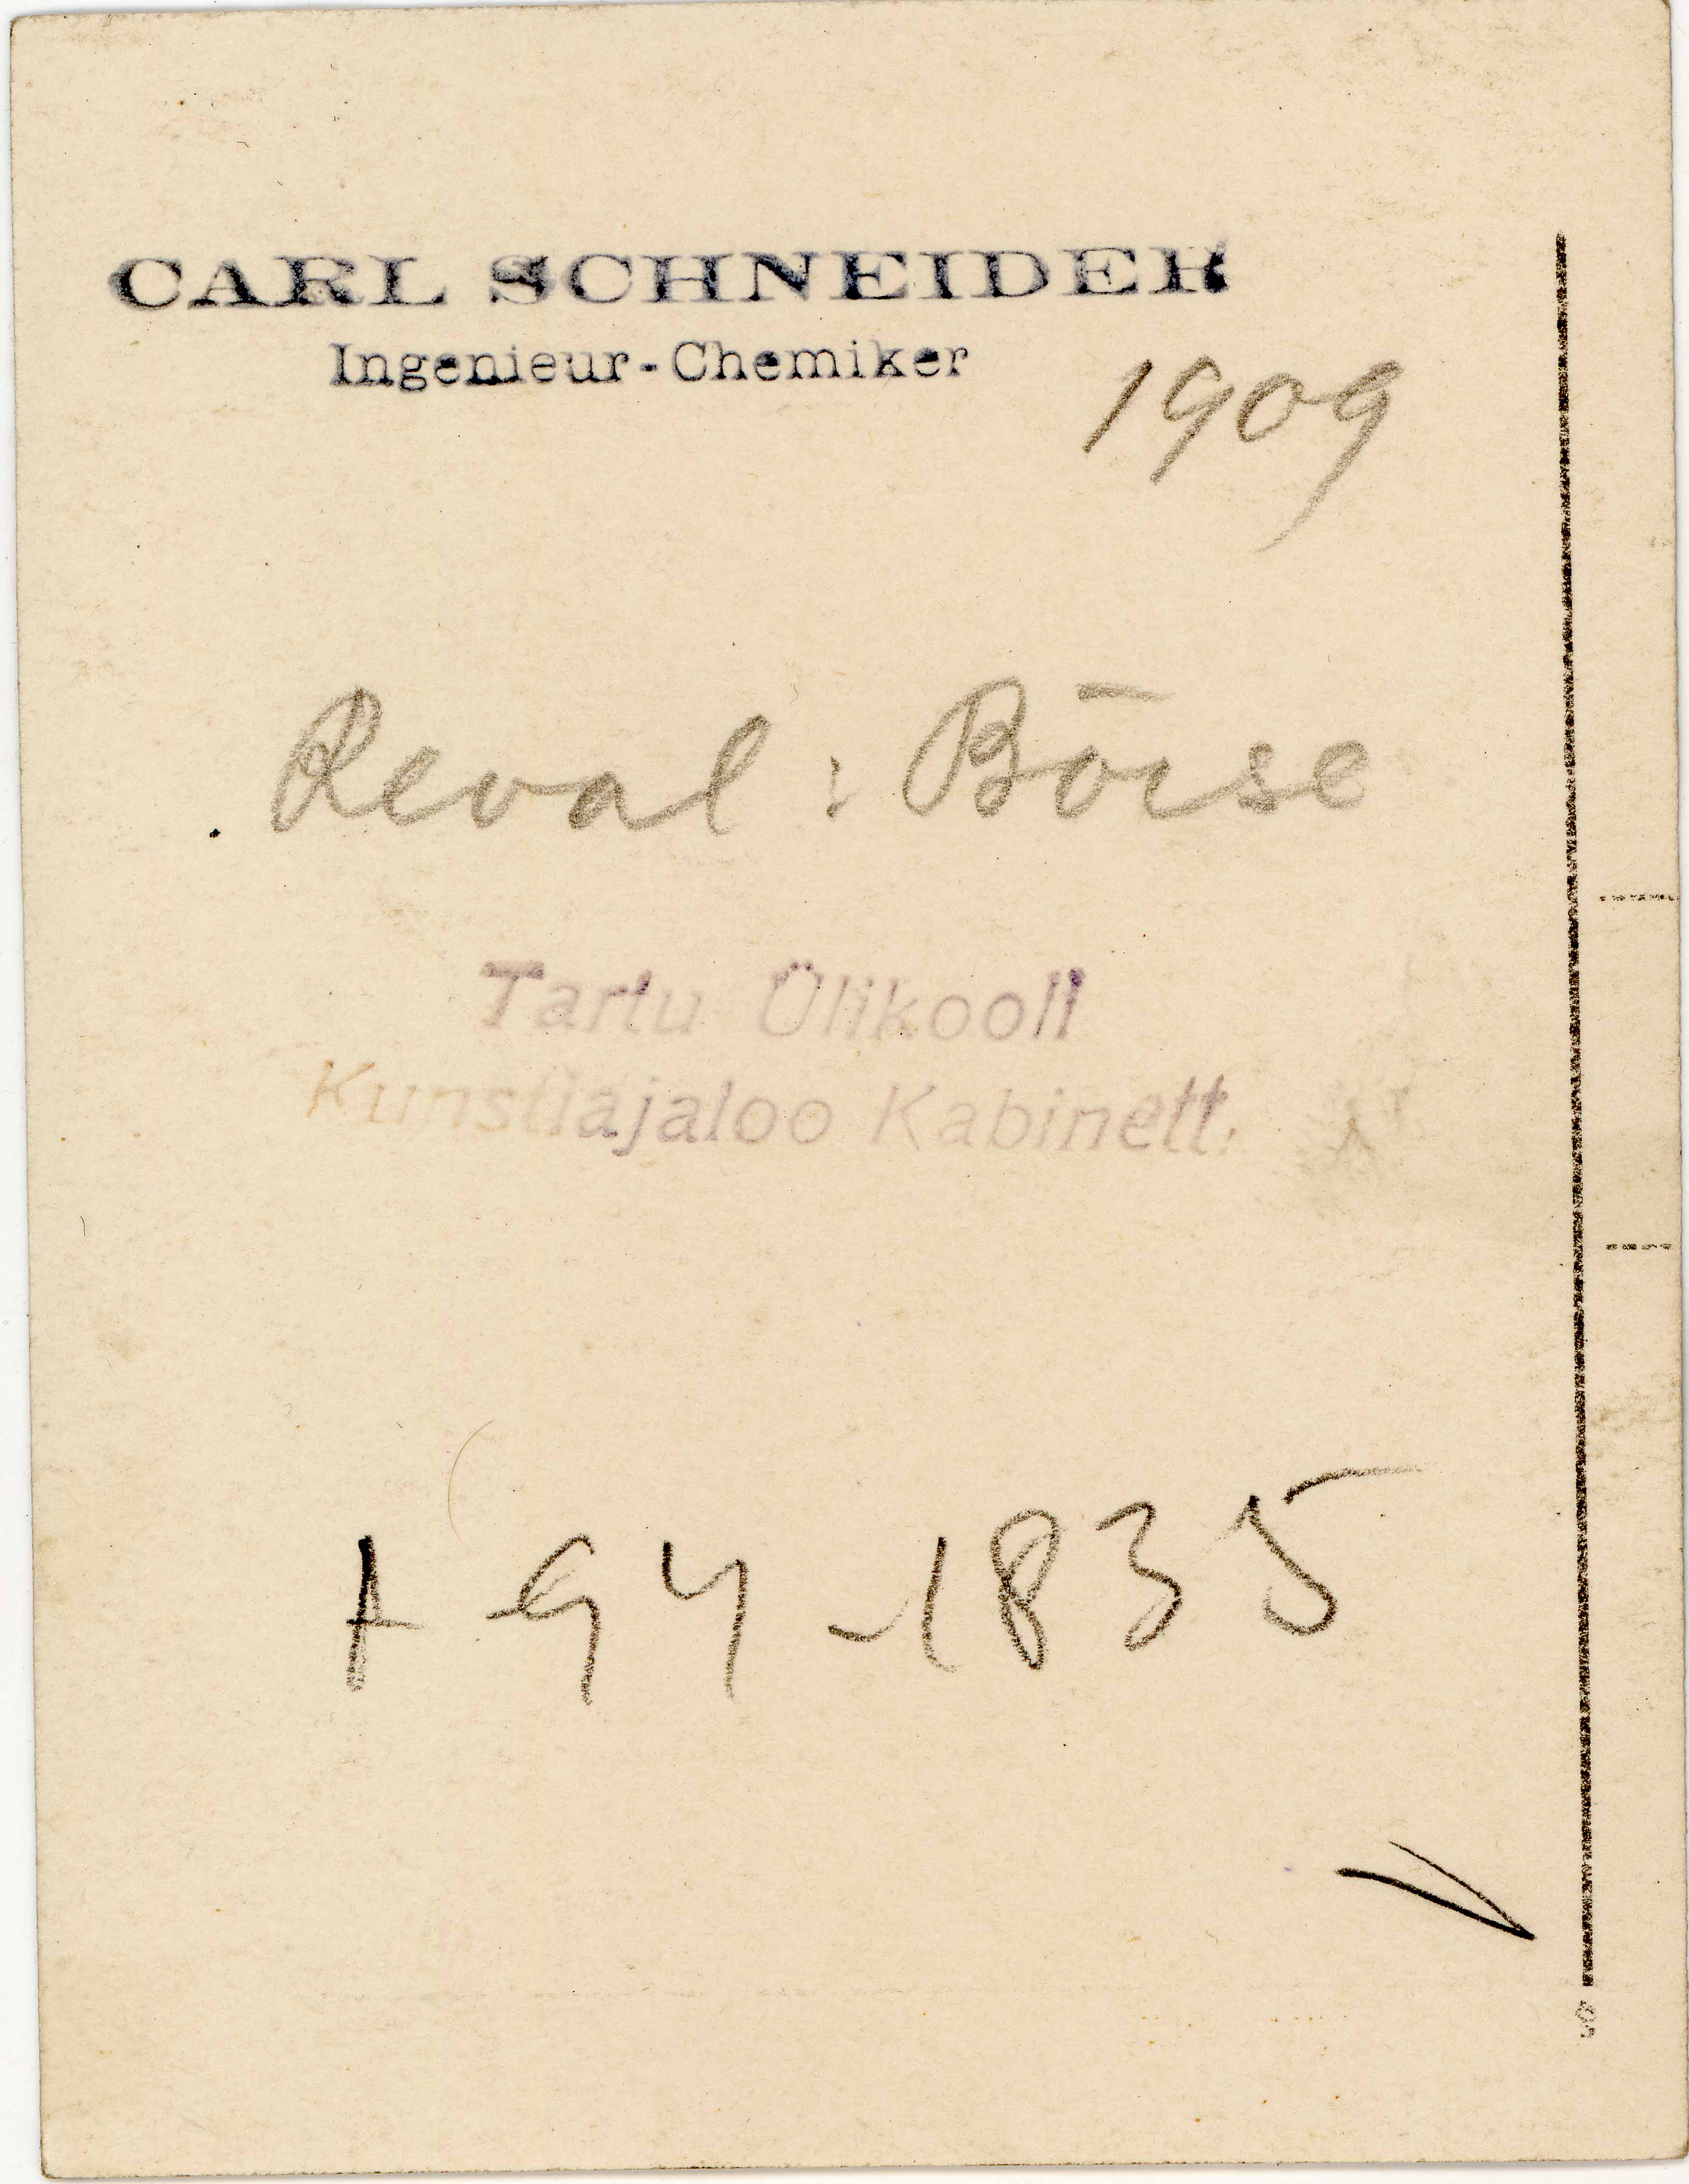 CARL SCHNEIDER
Ingenieur-Chemiker
1909
Reval : Börse
Tartu Ülikooll
Kunstiajaloo Kabinett.
A-94-1835